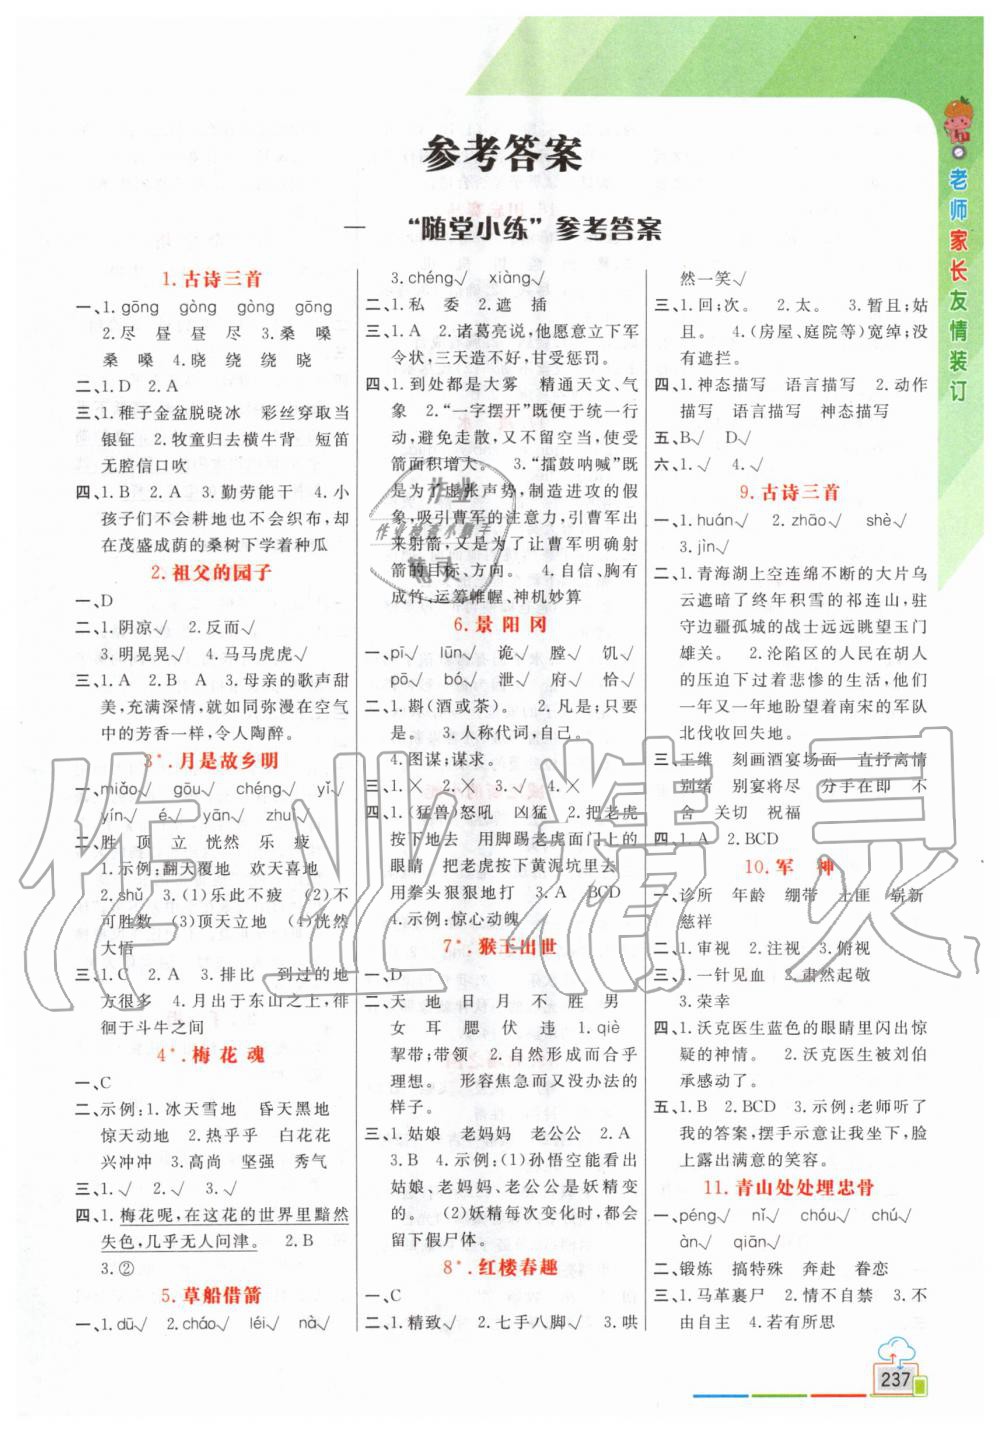 参考答案
— “随堂小练”参考答案
1.古诗三首
一、1.gōng gòng gòng gōng
2.尽 昼 昼 尽 3.桑 嗓
桑 嗓 4.晓 绕 绕 晓
二、1.D 2.A
三、1.稚子金盆脱晓冰 彩丝穿取当
银钲 2.牧童归去横牛背 短笛
无腔信口吹
四、1.B 2.A 3.勤劳能干 4.小
孩子们不会耕地也不会织布,却
在茂盛成荫的桑树下学着种瓜
2.祖父的园子
一、D
二、1.阴凉√ 2.反而√
3.明晃晃√ 4.马马虎虎√
三、1.A 2.B 3.母亲的歌声甜
美,充满深情,就如同弥漫在空气
中的芳香一样,令人陶醉。
3*.月是故乡明
一、miǎo√ gōu√ chéng√ yǐ√
yín√ é√ yān√ zhu√
二、胜 顶 立 恍然 乐 疲
1.示例:翻天覆地 欢天喜地
2.shǔ 3.(1)乐此不疲 (2)不
可胜数 (3)顶天立地 (4)恍然
大悟
三、1.C 2.A 3.排比 到过的地
方很多 4.月出于东山之上,徘
徊于斗牛之间
4*.梅花魂
一、C
二、示例:1.冰天雪地 昏天黑地
惊天动地 2.热乎乎 白花花
兴冲冲 3.高尚 坚强 秀气
三、1.√ 2.√ 3.√
四、1.梅花呢,在这花的世界里黯然
失色,几乎无人问津。 2.B
3.②
5.草船借箭
一、1.dū√ 2.cháo√ léi√ nà√
3.chéng√ xiàng√
二、1.私 委 2.遮 插
三、1.A 2.诸葛亮说,他愿意立下军
令状,三天造不好,甘受惩罚。
四、1.到处都是大雾 精通天文、气
象 2.“一字摆开”既便于统一行
动,避免走散,又不留空当,使受
箭面积增大。 3.“擂鼓呐喊”既
是为了虚张声势,制造进攻的假
象,吸引曹军的注意力,引曹军出
来射箭,又是为了让曹军明确射
箭的目标、方向。 4.自信、胸有
成竹、运筹帷幄、神机妙算
6.景阳冈
一、pī√ lūn√ 诡√ 膛√ 饥√
pō√ bó√ 泄√ 府√ 恰√
二、1.斟(酒或茶)。 2.凡是;只要
是。 3.人称代词,自己。
4.图谋;谋求。
三、1.× 2.× 3.√ 4.×
四、1.(猛兽)怒吼 凶猛 2.把老虎
按下地去 用脚踢老虎面门上的
眼睛 把老虎按下黄泥坑里去
用拳头狠狠地打 3.A BCD
4.示例:惊心动魄
7*.猴王出世
一、D
二、天 地 日 月 不 胜 男
女 耳 腮 伏 违 1.qiè
挈带;带领 2.自然形成而合乎
理想。 形容焦急而又没办法的
样子。
三、1.姑娘 老妈妈 老公公 2.A
3.B 4.示例:(1)孙悟空能看出
姑娘、老妈妈、老公公是妖精变
的。 (2)妖精每次变化时,都会
留下假尸体。
8*.红楼春趣
一、C
二、1.精致√ 2.七手八脚√ 3.哄
然一笑√
三、1.回;次。 2.太。 3.暂且;姑
且。 4.(房屋、庭院等)宽绰;没
有遮拦。
四、1.神态描写 语言描写 2.动作
描写 语言描写 神态描写
五、B√ D√
六、1.√ 4.√
9.古诗三首
一、1.huán√ 2.zhāo√ shè√
3.jìn√
二、1.青海湖上空连绵不断的大片乌
云遮暗了终年积雪的祁连山,驻
守边疆孤城的战士远远眺望玉门
雄关。 2.沦陷区的人民在胡人
的压迫下过着悲惨的生活,他们
一年又一年地盼望着南宋的军队
北伐收回失地。
三、王维 刻画酒宴场面 直抒离情
别绪 别宴将尽 分手在即 不
舍 关切 祝福
四、1.A 2.BCD
10.军 神
一、诊所 年龄 绷带 土匪 崭新
慈祥
二、1.审视 2.注视 3.俯视
三、1.一针见血 2.肃然起敬
3.荣幸
四、1.沃克医生蓝色的眼睛里闪出惊
疑的神情。 2.沃克医生被刘伯
承感动了。
五、1.B 2.BCD 3.示例:老师听了
我的答案,摆手示意让我坐下,脸
上露出满意的笑容。
11.青山处处埋忠骨
一、péng√ nǐ√ chóu√ chú√
àn√ qiān√
二、锻炼 搞特殊 奔赴 眷恋
三、1.马革裹尸 2.情不自禁 3.不
由自主 4.若有所思
老师家长友情装订
237
作业精灵
作业
作业检查小助手
精灵